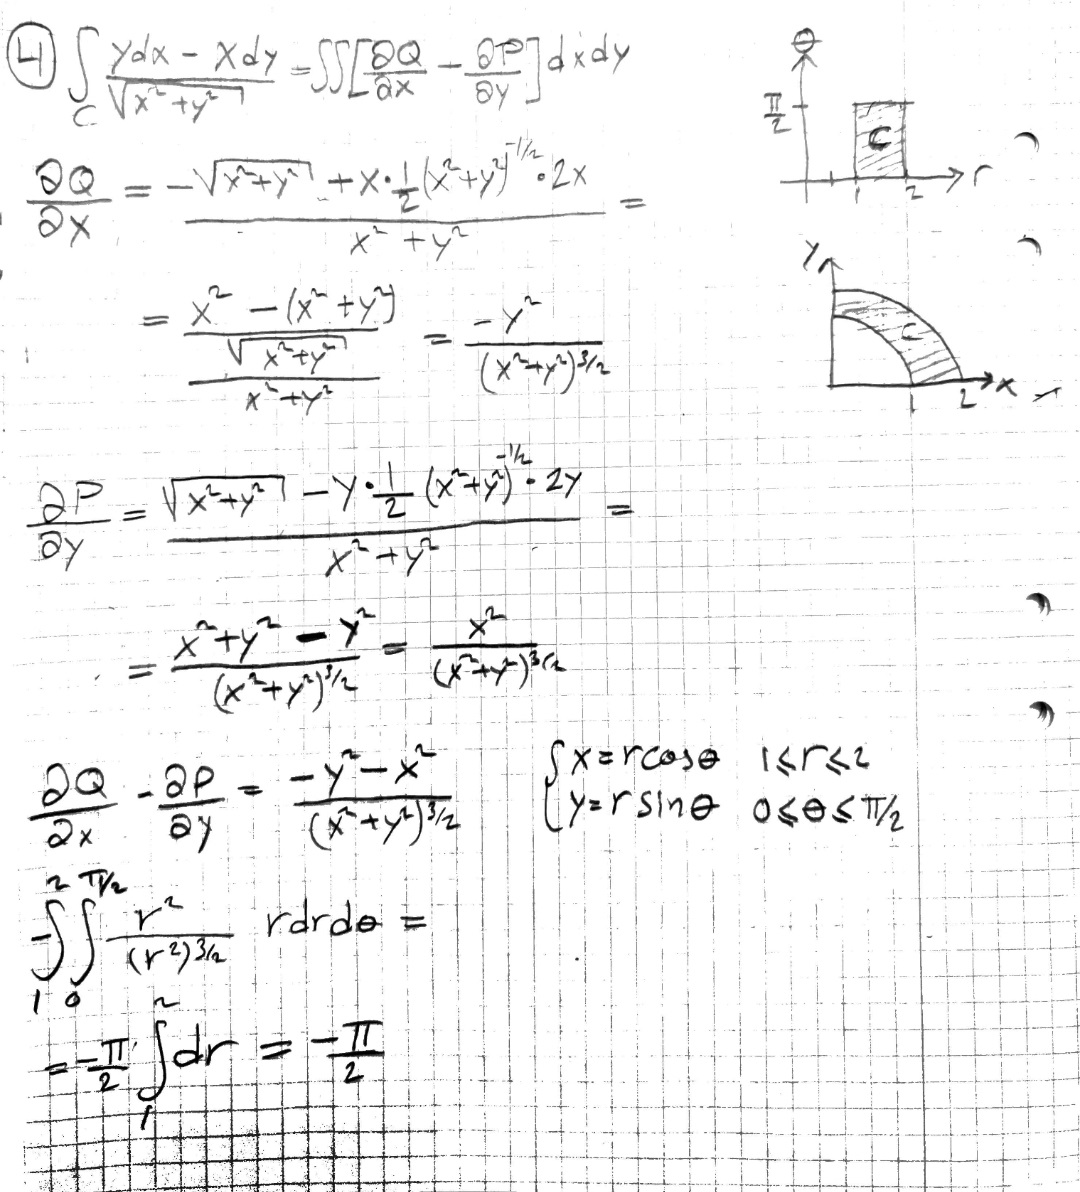 4) ∫_C (ydx - xdy)/√(x²+y²) = ∬[∂Q/∂x - ∂P/∂y]dxdy
∂Q/∂x = (-√(x²+y²) + x·1/2(x²+y²)^(-1/2)·2x)/(x²+y²) =
= ((x² - (x²+y²))/√(x²+y²))/(x²+y²) = -y²/(x²+y²)^(3/2)
∂P/∂y = (√(x²+y²) - y·1/2(x²+y²)^(-1/2)·2y)/(x²+y²) =
= (x²+y² - y²)/(x²+y²)^(3/2) = x²/(x²+y²)^(3/2)
∂Q/∂x - ∂P/∂y = (-y²-x²)/(x²+y²)^(3/2)
{x=rcosθ 1≤r≤2
y=rsinθ 0≤θ≤π/2
-∫_1^2 ∫_0^(π/2) r²/(r²)^(3/2) rdrdθ =
= -π/2 ∫_1^2 dr = -π/2
θ
π/2
C
1 2 r
y
C
1 2 x